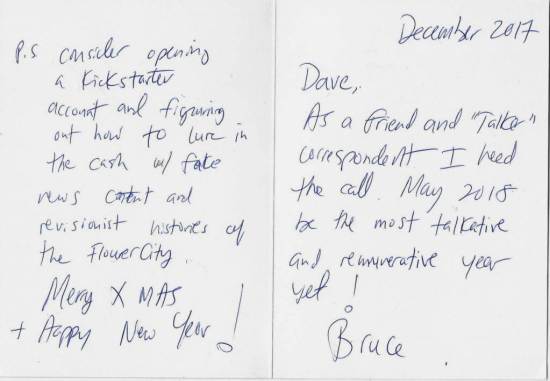 December 2017
Dave,
As a friend and "Talker"
correspondent I heed
the call. May 2018
be the most talkative
and remunerative year
yet!
Bruce
P.S consider opening
a Kickstarter
account and figuring
out how to lure in
the cash w/ fake
news content and
revisionist histories of
the FlowerCity.
Merry X MAS
+ Happy New Year!